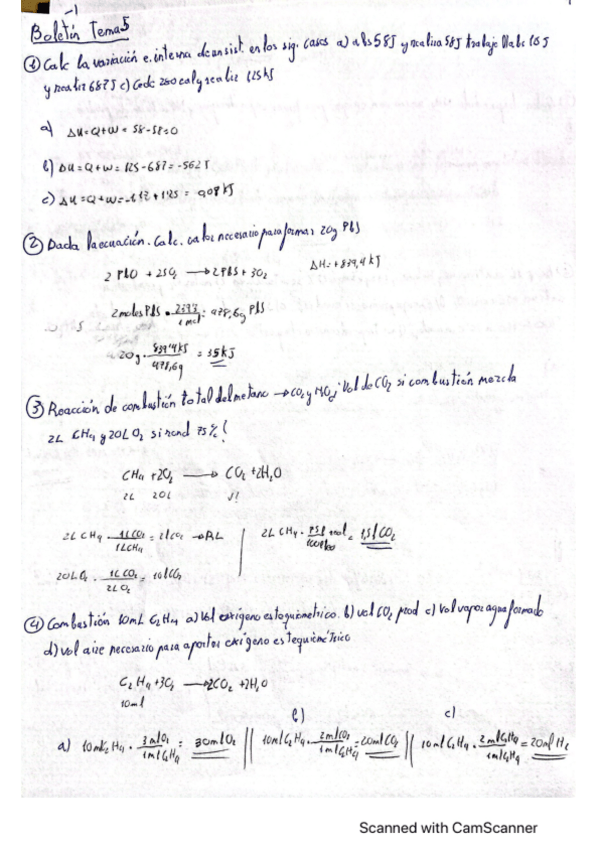 -1
Boletín Tema 5
① Calc la variación e. interna de un sist. en los sig. casos a) abs 58J y realiza 58J trabajo
y realiza 687J c) Cede 280 cal y
a) ΔU = Q+W = 58-58=0
b) ΔU = Q+W = 125-687=-562J
c) ΔU = Q+W =
② Dada la ecuación. Calc. calor necesario para formar 20g PbS
2 PbO + 2SO₂ → 2PbS + 3O₂ ΔH=+839,4 kJ
2 moles PbS · = 478,6g PbS
20g · 839'4kJ/478,6g = 35kJ
③ Reacción de combustión total del metano → CO₂ y H₂O ¿Vol de CO₂ si combustión mezcla
2L CH₄ y 20L O₂ si rend 75%?
CH₄ + 2O₂ → CO₂ + 2H₂O
2L 20L
2L CH₄ · 1L CO₂/1L CH₄ = 2l CO₂ → RL 2L CH₄ · = 1,5l CO₂
20L O₂ · 1L CO₂/2L O₂ = 10l CO₂
④ Combustión 10mL C₂H₄ a) Vol oxígeno estequiométrico. b) vol CO₂ prod c) Vol vapor agua formado
d) vol aire necesario para aportar oxígeno estequiométrico
C₂H₄ + 3O₂ → 2CO₂ + 2H₂O
10ml
b) c)
a) 10ml C₂H₄ · 3mlO₂/1mlC₂H₄ = 30mlO₂ || 10mlC₂H₄ · 2mlCO₂/1mlC₂H₄ = 20mlCO₂ || 10mlC₂H₄ · = 20ml
Scanned with CamScanner